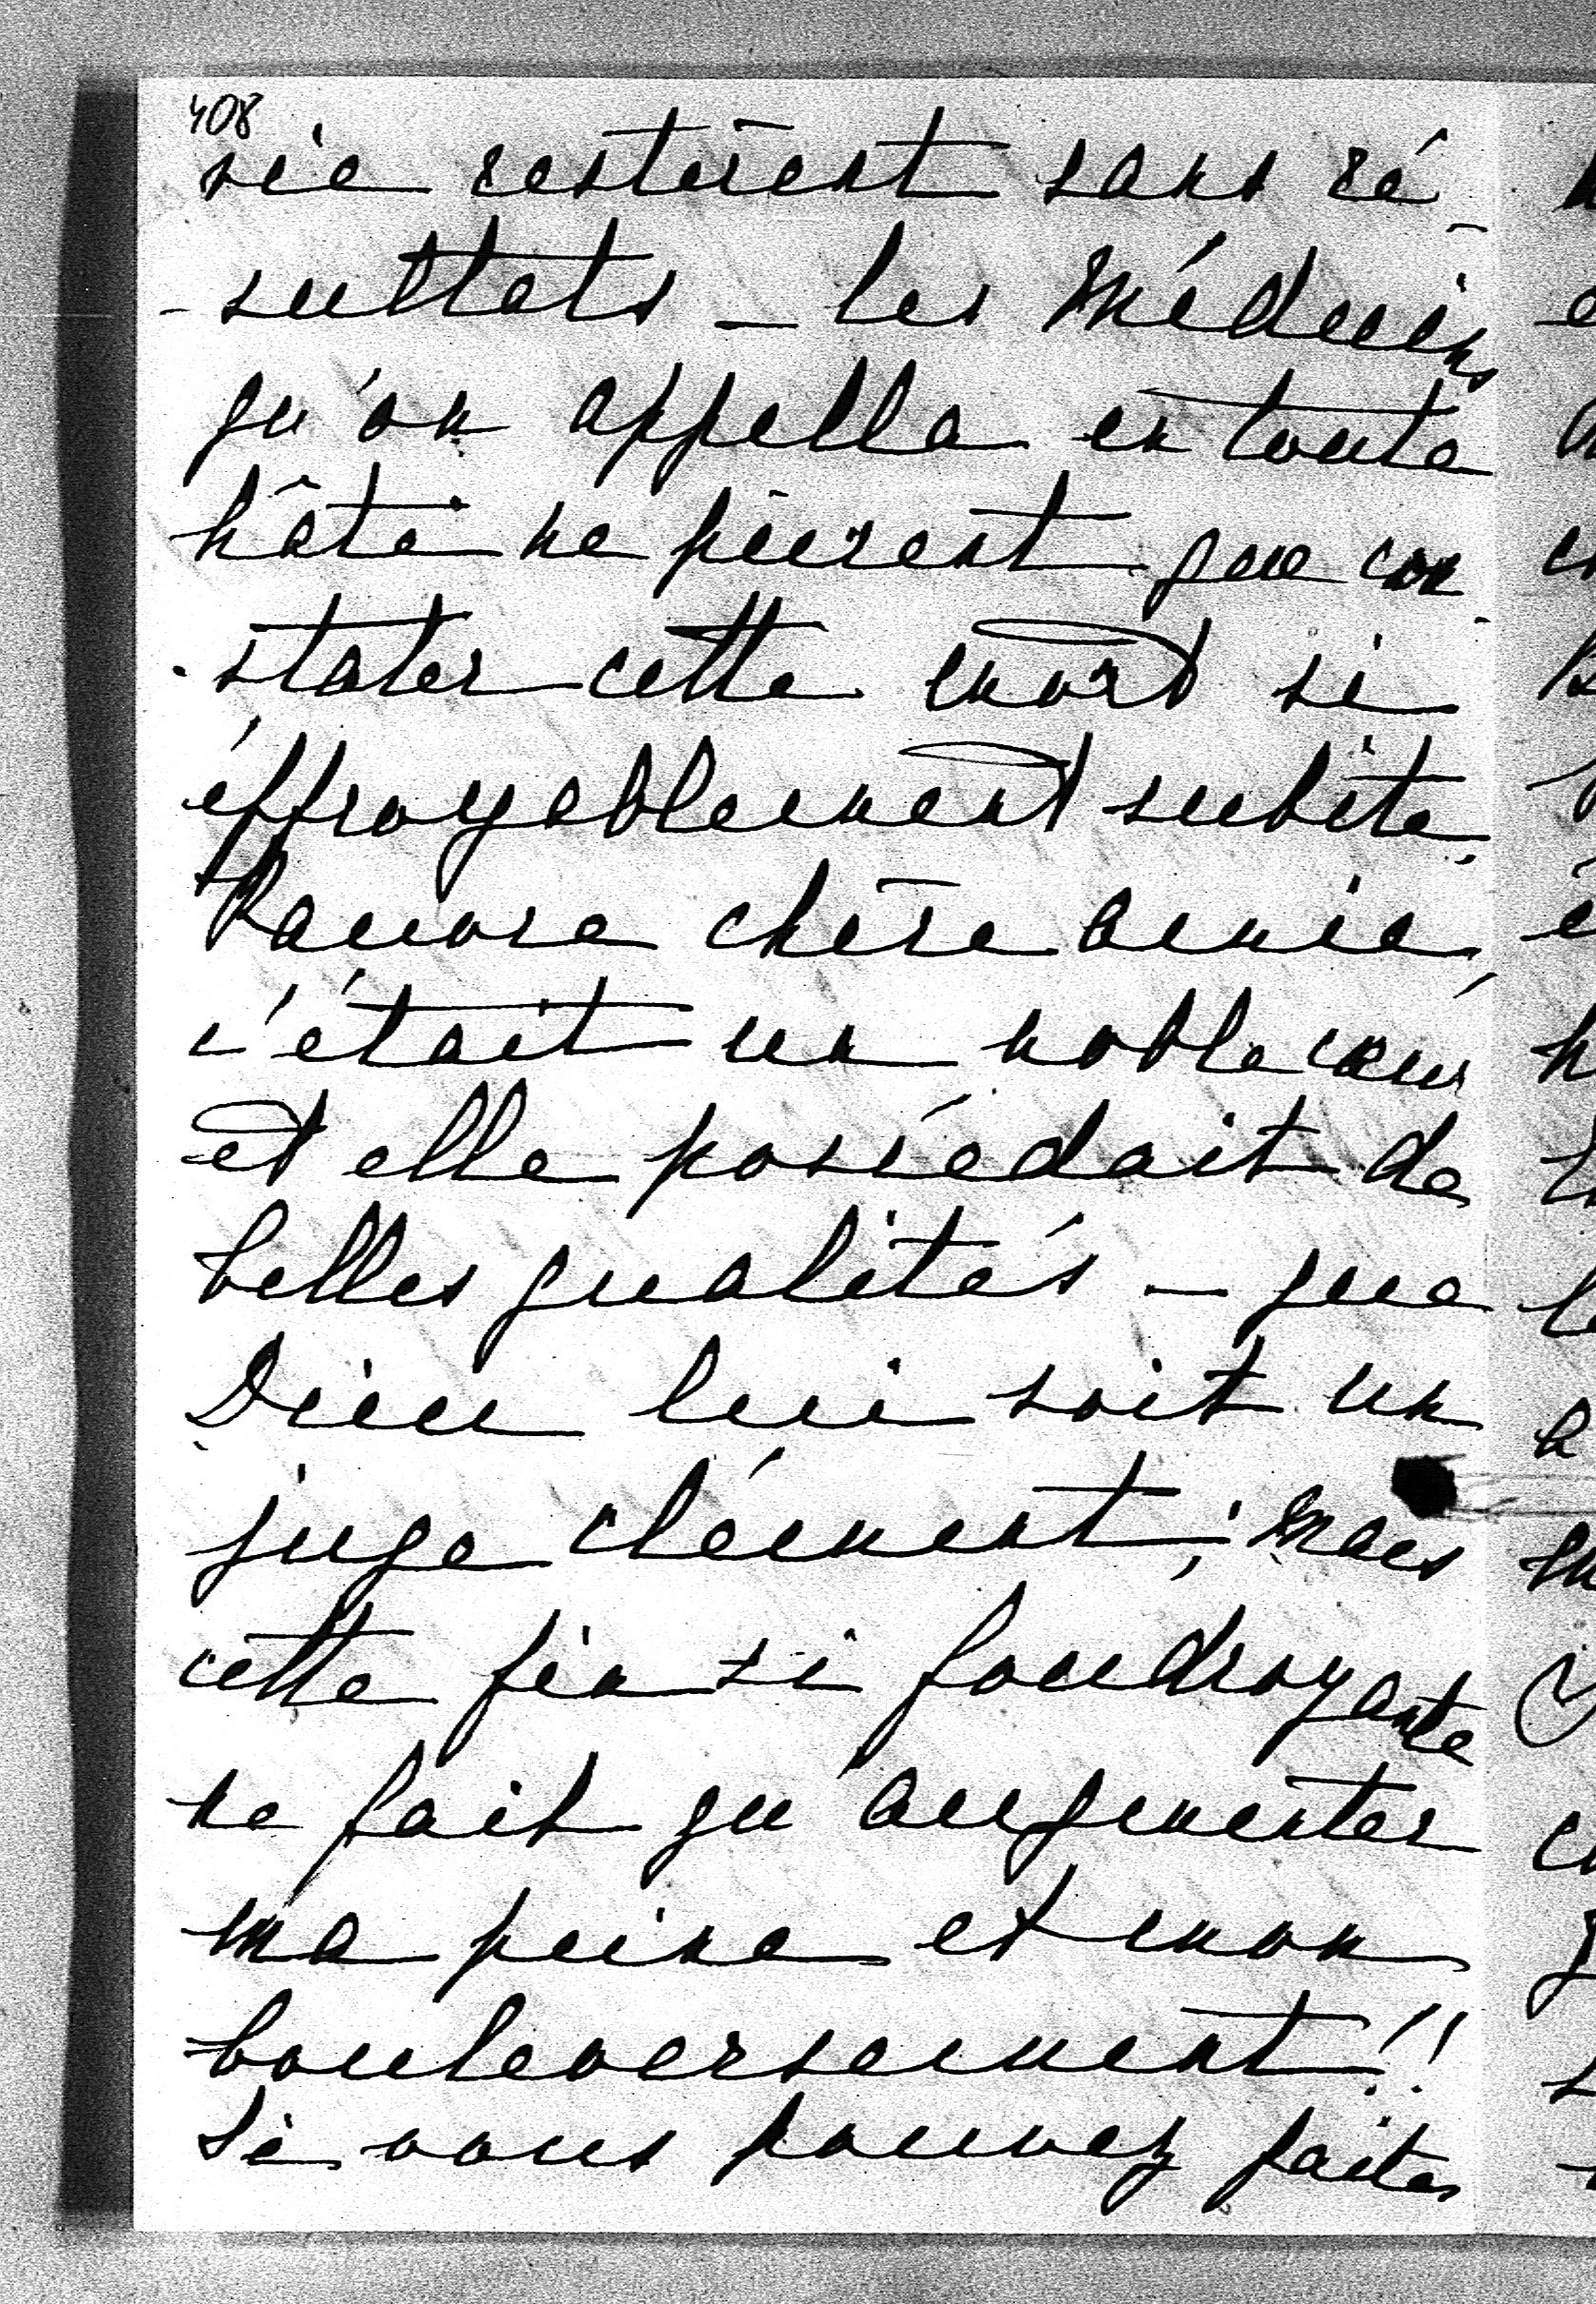 408
sie restèrent sans ré-
-sultats – les Médecins
qu'on appella en toute
hâte ne purent que con-
-stater cette mort si
éffroyablement subite.
Pauvre chère amie,
c'était un noble cœur
et elle possédait de
belles qualités – que
Dieu lui soit un
juge clément; mais
cette fin si foudroyante
ne fait qu'augmenter
ma peine et mon
bouleversement!!
Si vous pouvez faites